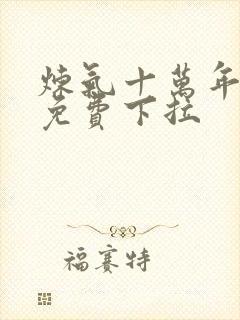 煉氣十萬年
免費下拉
福賽特